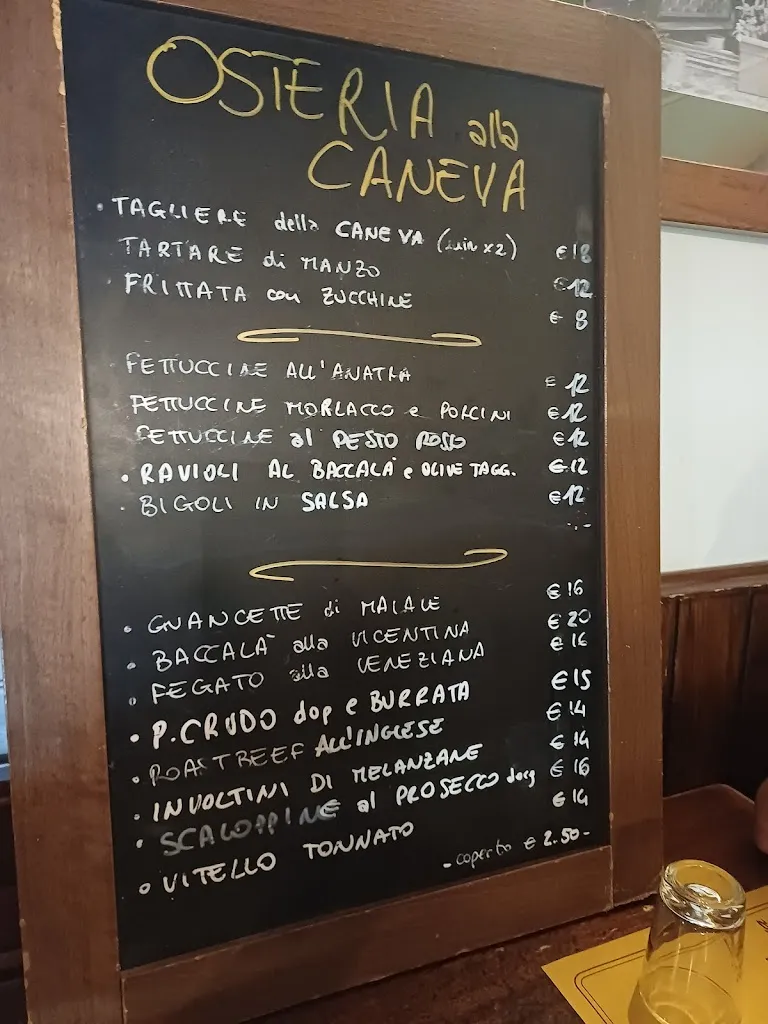 OSTERIA alla
CANEVA
• TAGLIERE della CANEVA (min x2) € 18
TARTARE di MANZO € 12
FRITTATA con ZUCCHINE € 8
FETTUCCINE ALL'ANATRA € 12
FETTUCCINE MORLACCO e PORCINI € 12
FETTUCCINE al PESTO ROSSO € 12
• RAVIOLI AL BACCALA' e OLIVE TAGG. € 12
• BIGOLI IN SALSA € 12
• GUANCETTE di MAIALE € 16
• BACCALA' alla VICENTINA € 20
• FEGATO alla VENEZIANA € 16
• P.CRUDO dop e BURRATA € 15
• ROASTBEEF ALL'INGLESE € 14
• INVOLTINI DI MELANZANE € 14
• SCALOPPINE al PROSECCO docg € 16
• VITELLO TONNATO € 14
- coperto € 2.50-